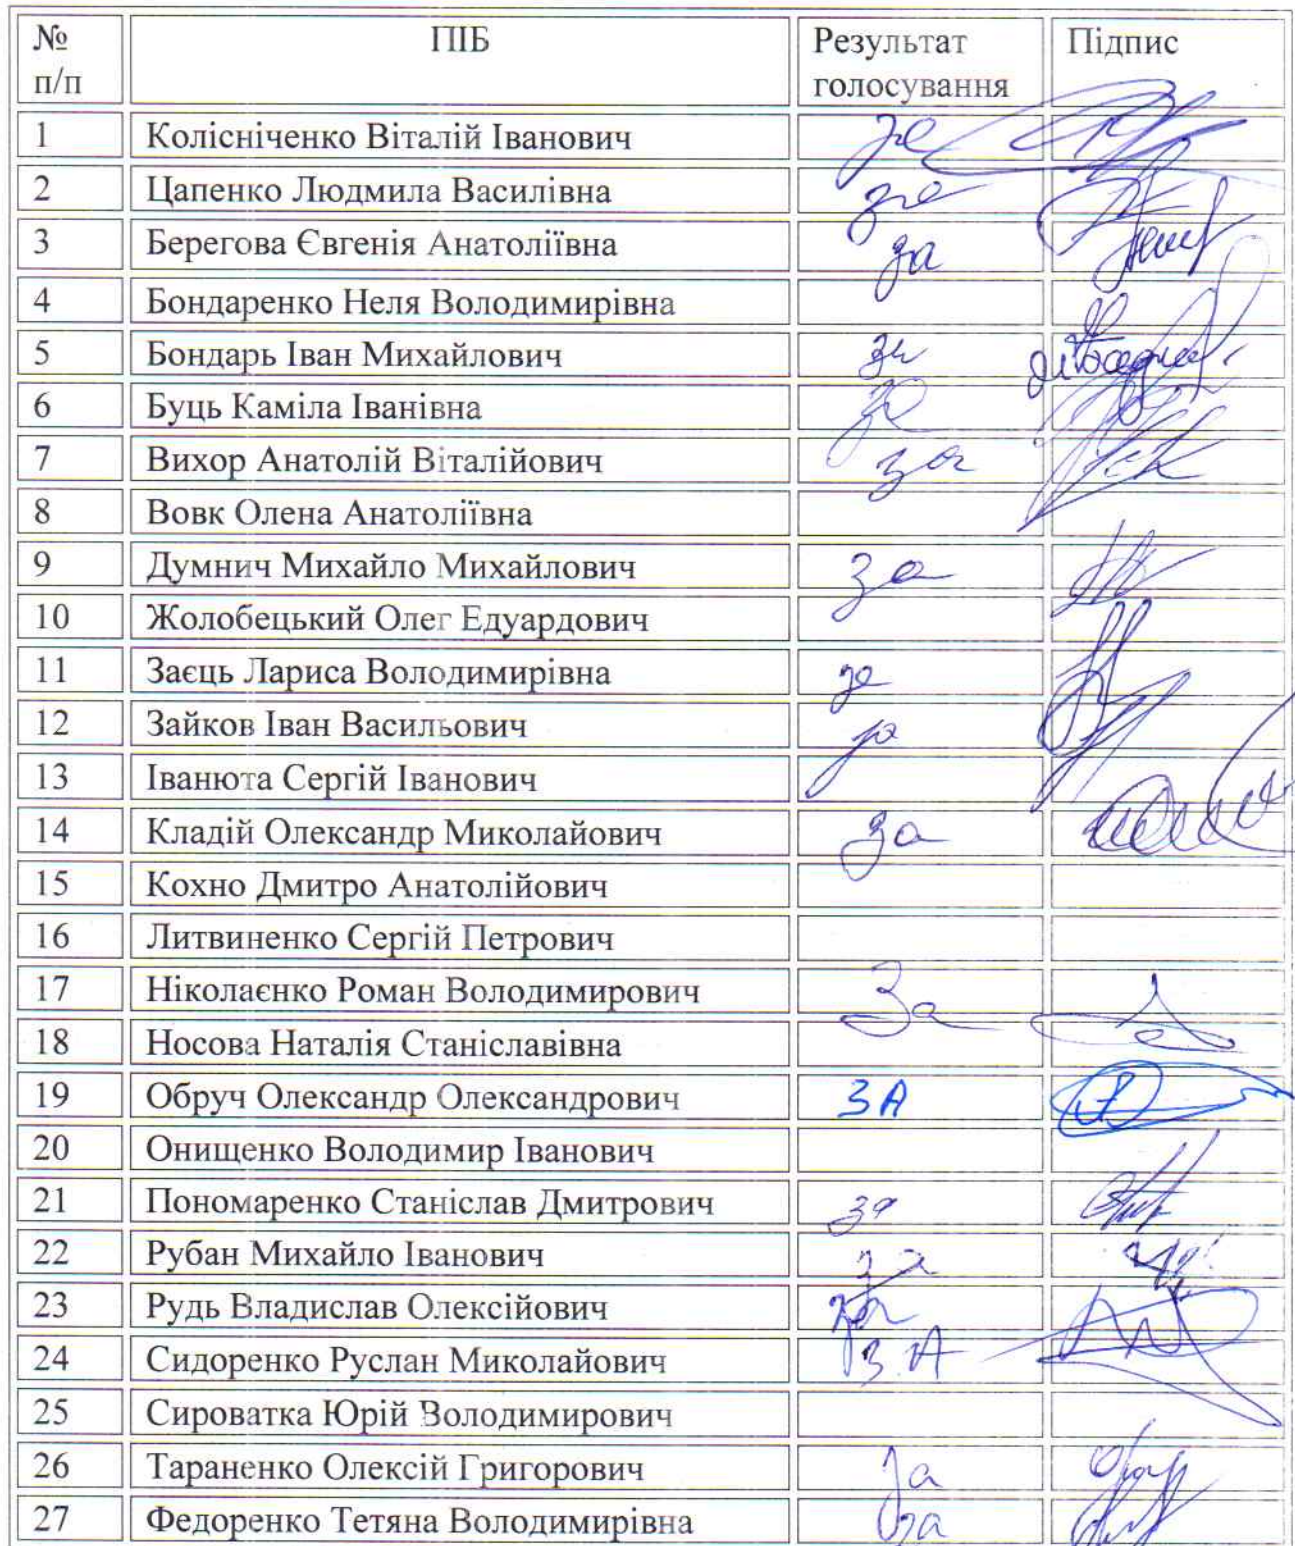 № п/п ПІБ Результат голосування Підпис
1 Колісніченко Віталій Іванович за
2 Цапенко Людмила Василівна за
3 Берегова Євгенія Анатоліївна за
4 Бондаренко Неля Володимирівна
5 Бондарь Іван Михайлович за
6 Буць Каміла Іванівна за
7 Вихор Анатолій Віталійович за
8 Вовк Олена Анатоліївна
9 Думнич Михайло Михайлович за
10 Жолобецький Олег Едуардович
11 Заєць Лариса Володимирівна за
12 Зайков Іван Васильович за
13 Іванюта Сергій Іванович
14 Кладій Олександр Миколайович за
15 Кохно Дмитро Анатолійович
16 Литвиненко Сергій Петрович
17 Ніколаєнко Роман Володимирович За
18 Носова Наталія Станіславівна
19 Обруч Олександр Олександрович ЗА
20 Онищенко Володимир Іванович
21 Пономаренко Станіслав Дмитрович за
22 Рубан Михайло Іванович за
23 Рудь Владислав Олексійович за
24 Сидоренко Руслан Миколайович ЗА
25 Сироватка Юрій Володимирович
26 Тараненко Олексій Григорович за
27 Федоренко Тетяна Володимирівна за